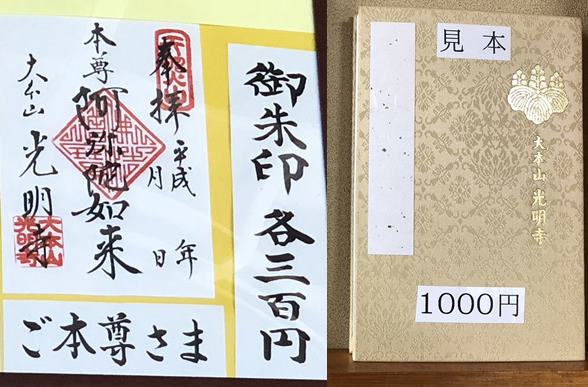 御朱印 各三百円
奉拝 平成 年 月 日
本尊 阿弥陀如来
大本山 光明寺
大本山
光明寺
ご本尊さま
見本
大本山 光明寺
1000円